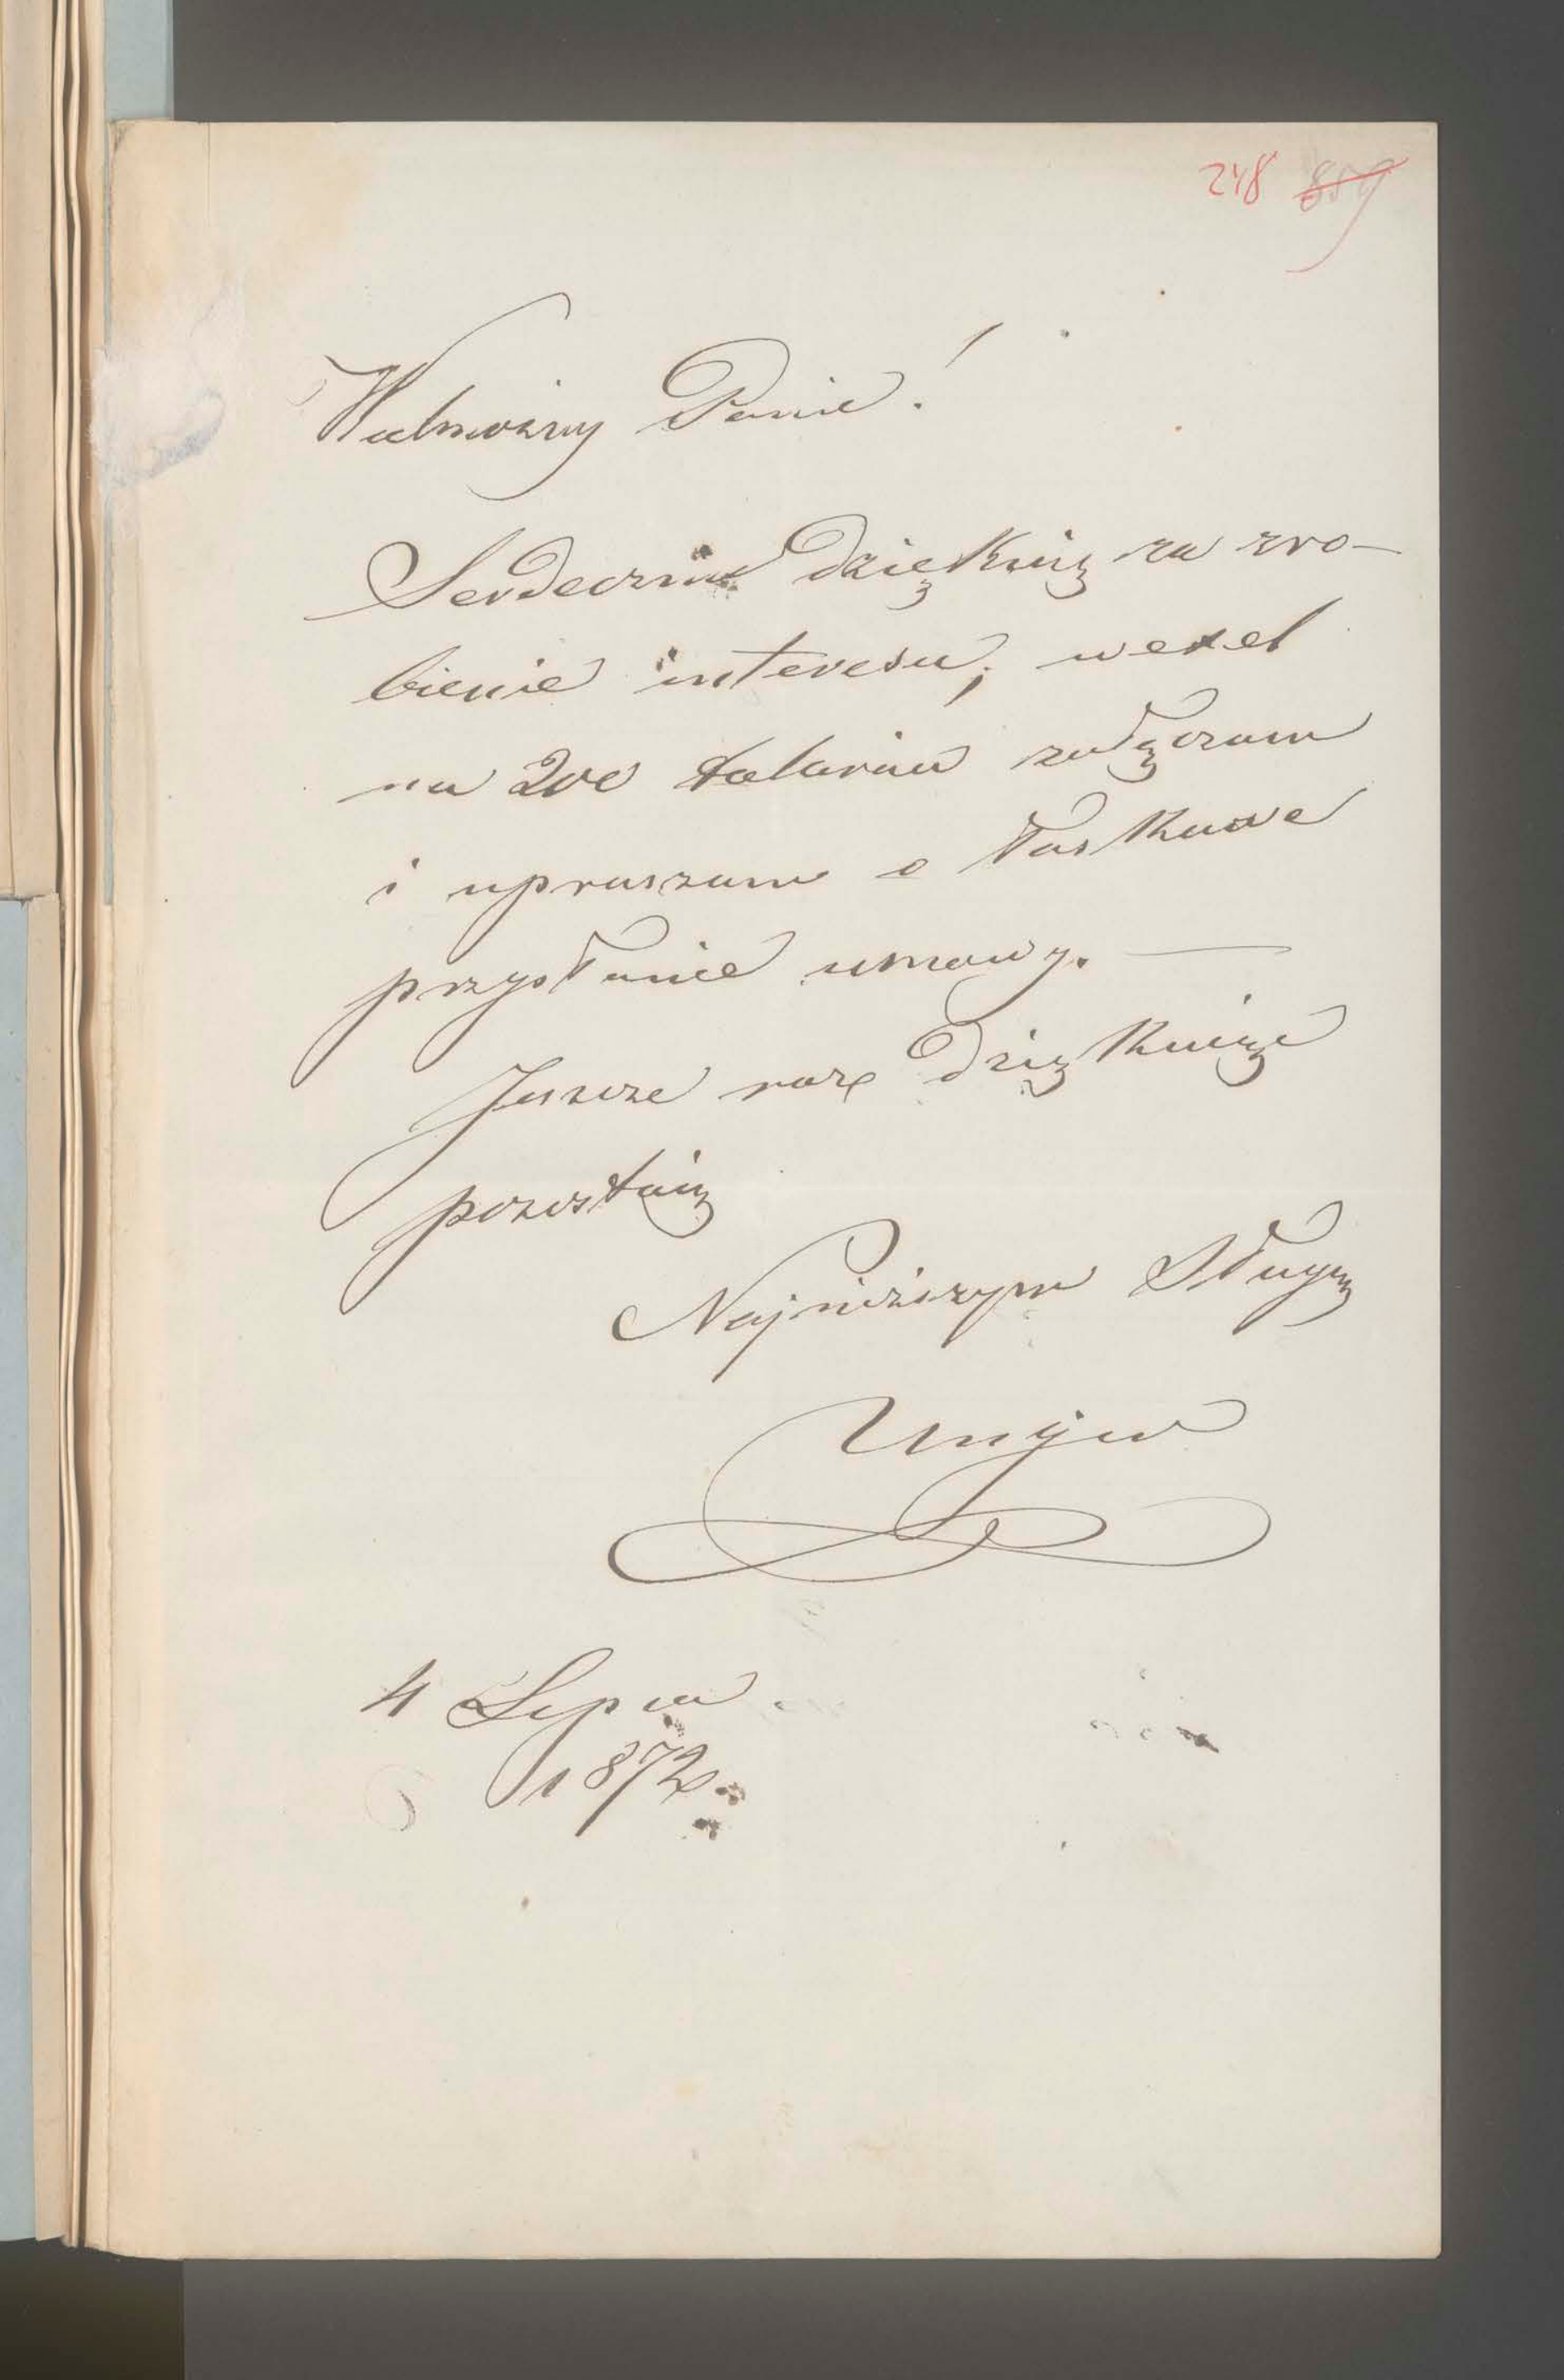 248 859
Wielmożny Panie!
Serdecznie dziękuię za zro-
bienie interesu; wexel
na 200 talarów załączam
i upraszam o łaskawe
przysłanie umowy. —
Jeszcze raz dziękuiąc
pozostaię
Najniższym Sługą
4 Lipca
1872.